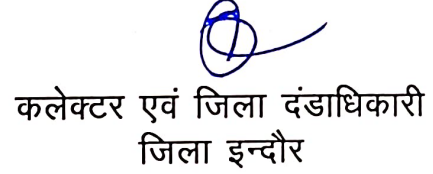 कलेक्टर एवं जिला दंडाधिकारी
जिला इन्दौर